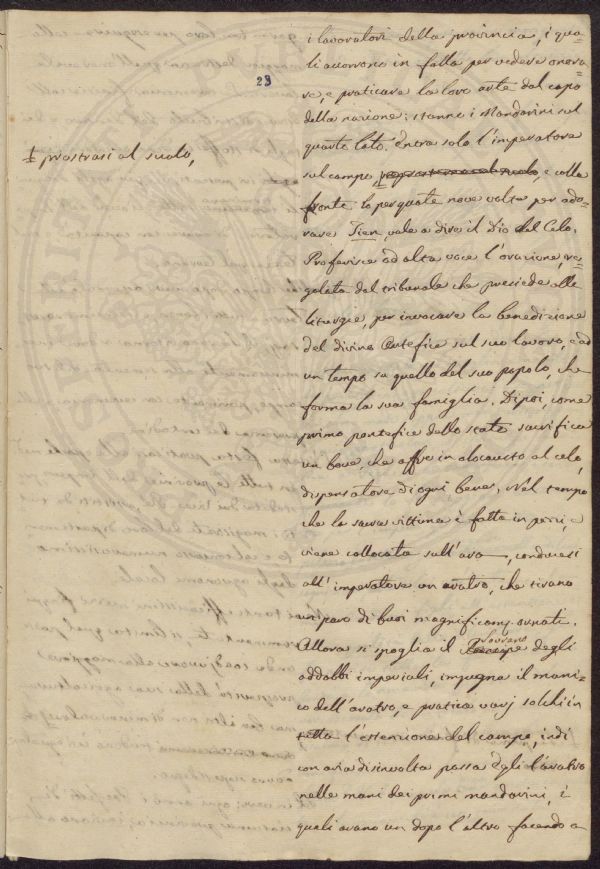 23
i lavoratori della provincia, i qua=
li accorrono in folla per vedere onora=
re, e praticare la loro arte dal capo
della nazione: stanno i Mandarini sul
quarto lato. Entra solo l'imperatore
+ prostrasi al suolo,
sul campo, e colla
fronte lo percuote nove volte per ado=
rare Tien, vale a dire il Dio del Cielo.
Proferisce ad alta voce l'orazione, re=
golata dal tribunale che presiede alle
liturgie, per invocare la benedizione
del divino Artefice sul suo lavoro, e ad
un tempo su quello del suo popolo, che
forma la sua famiglia. Dipoi, come
primo pontefice dello stato sacrifica
un bove, che offre in olocausto al cielo,
dispensatore di ogni bene. Nel tempo
che la sacra vittima è fatta in pezzi, e
viene collocata sull'ara, conducesi
all'imperatore un aratro, che tirano
un paro di buoi magnificam. ornati.
Allora si spoglia il Sovrano degli
addobbi imperiali, impugna il mani=
co dell'aratro, e pratica varj solchi in
tutta l'estenzione del campo, indi
con aria disinvolta passa egli l'aratro
nelle mani dei primi mandarini, i
quali arano un dopo l'altro facendo a